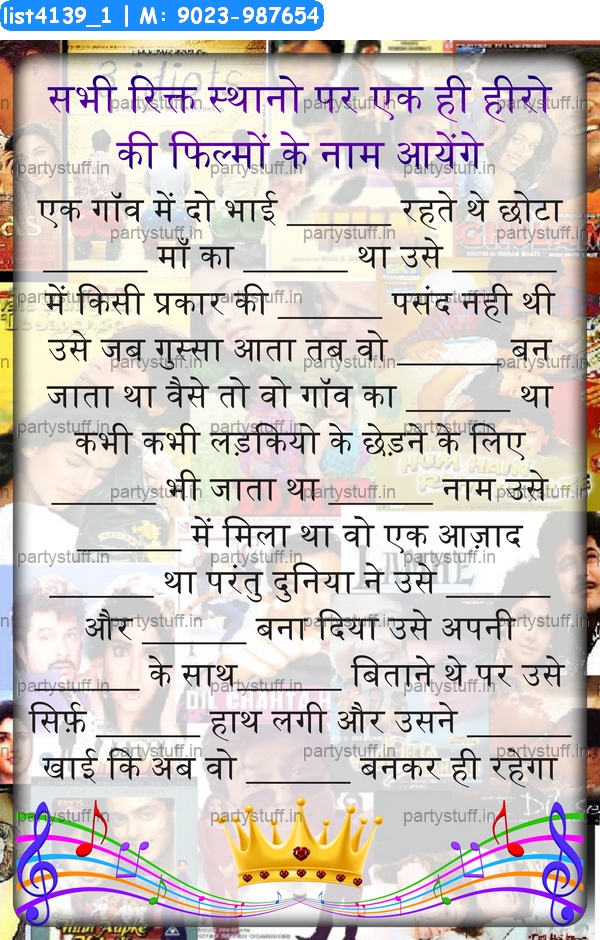 list4139_1 | M: 9023-987654
सभी रिक्त स्थानो पर एक ही हीरो
की फिल्मों के नाम आयेंगे
एक गॉव में दो भाई ______ रहते थे छोटा
______ माँ का ______ था उसे ______
में किसी प्रकार की ______ पसंद नही थी
उसे जब गुस्सा आता तब वो ______ बन
जाता था वैसे तो वो गॉव का ______ था
कभी कभी लड़कियो के छेड़ने के लिए
______ भी जाता था ______ नाम उसे
______ में मिला था वो एक आज़ाद
______ था परंतु दुनिया ने उसे ______
और ______ बना दिया उसे अपनी
______ के साथ ______ बिताने थे पर उसे
सिर्फ़ ______ हाथ लगी और उसने ______
खाई कि अब वो ______ बनकर ही रहेगा